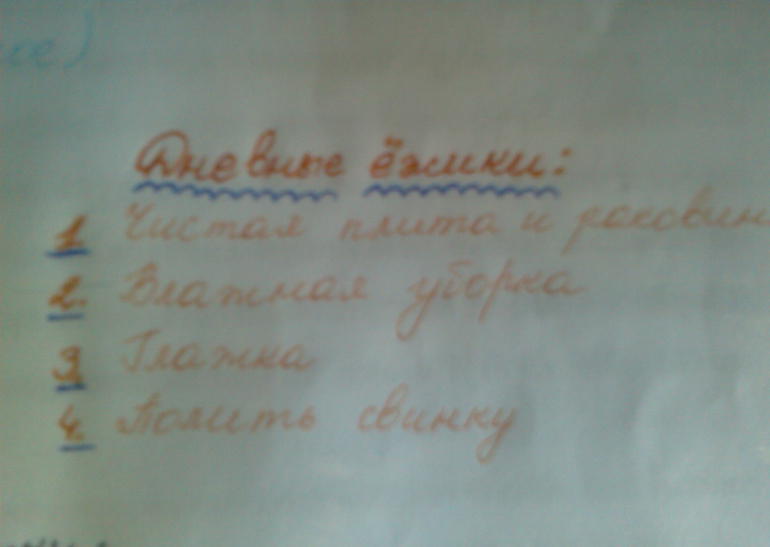 се)
Дневные ёжики:
1. Чистая плита и раковин
2. Влажная уборка
3. Глажка
4. Полить свинку